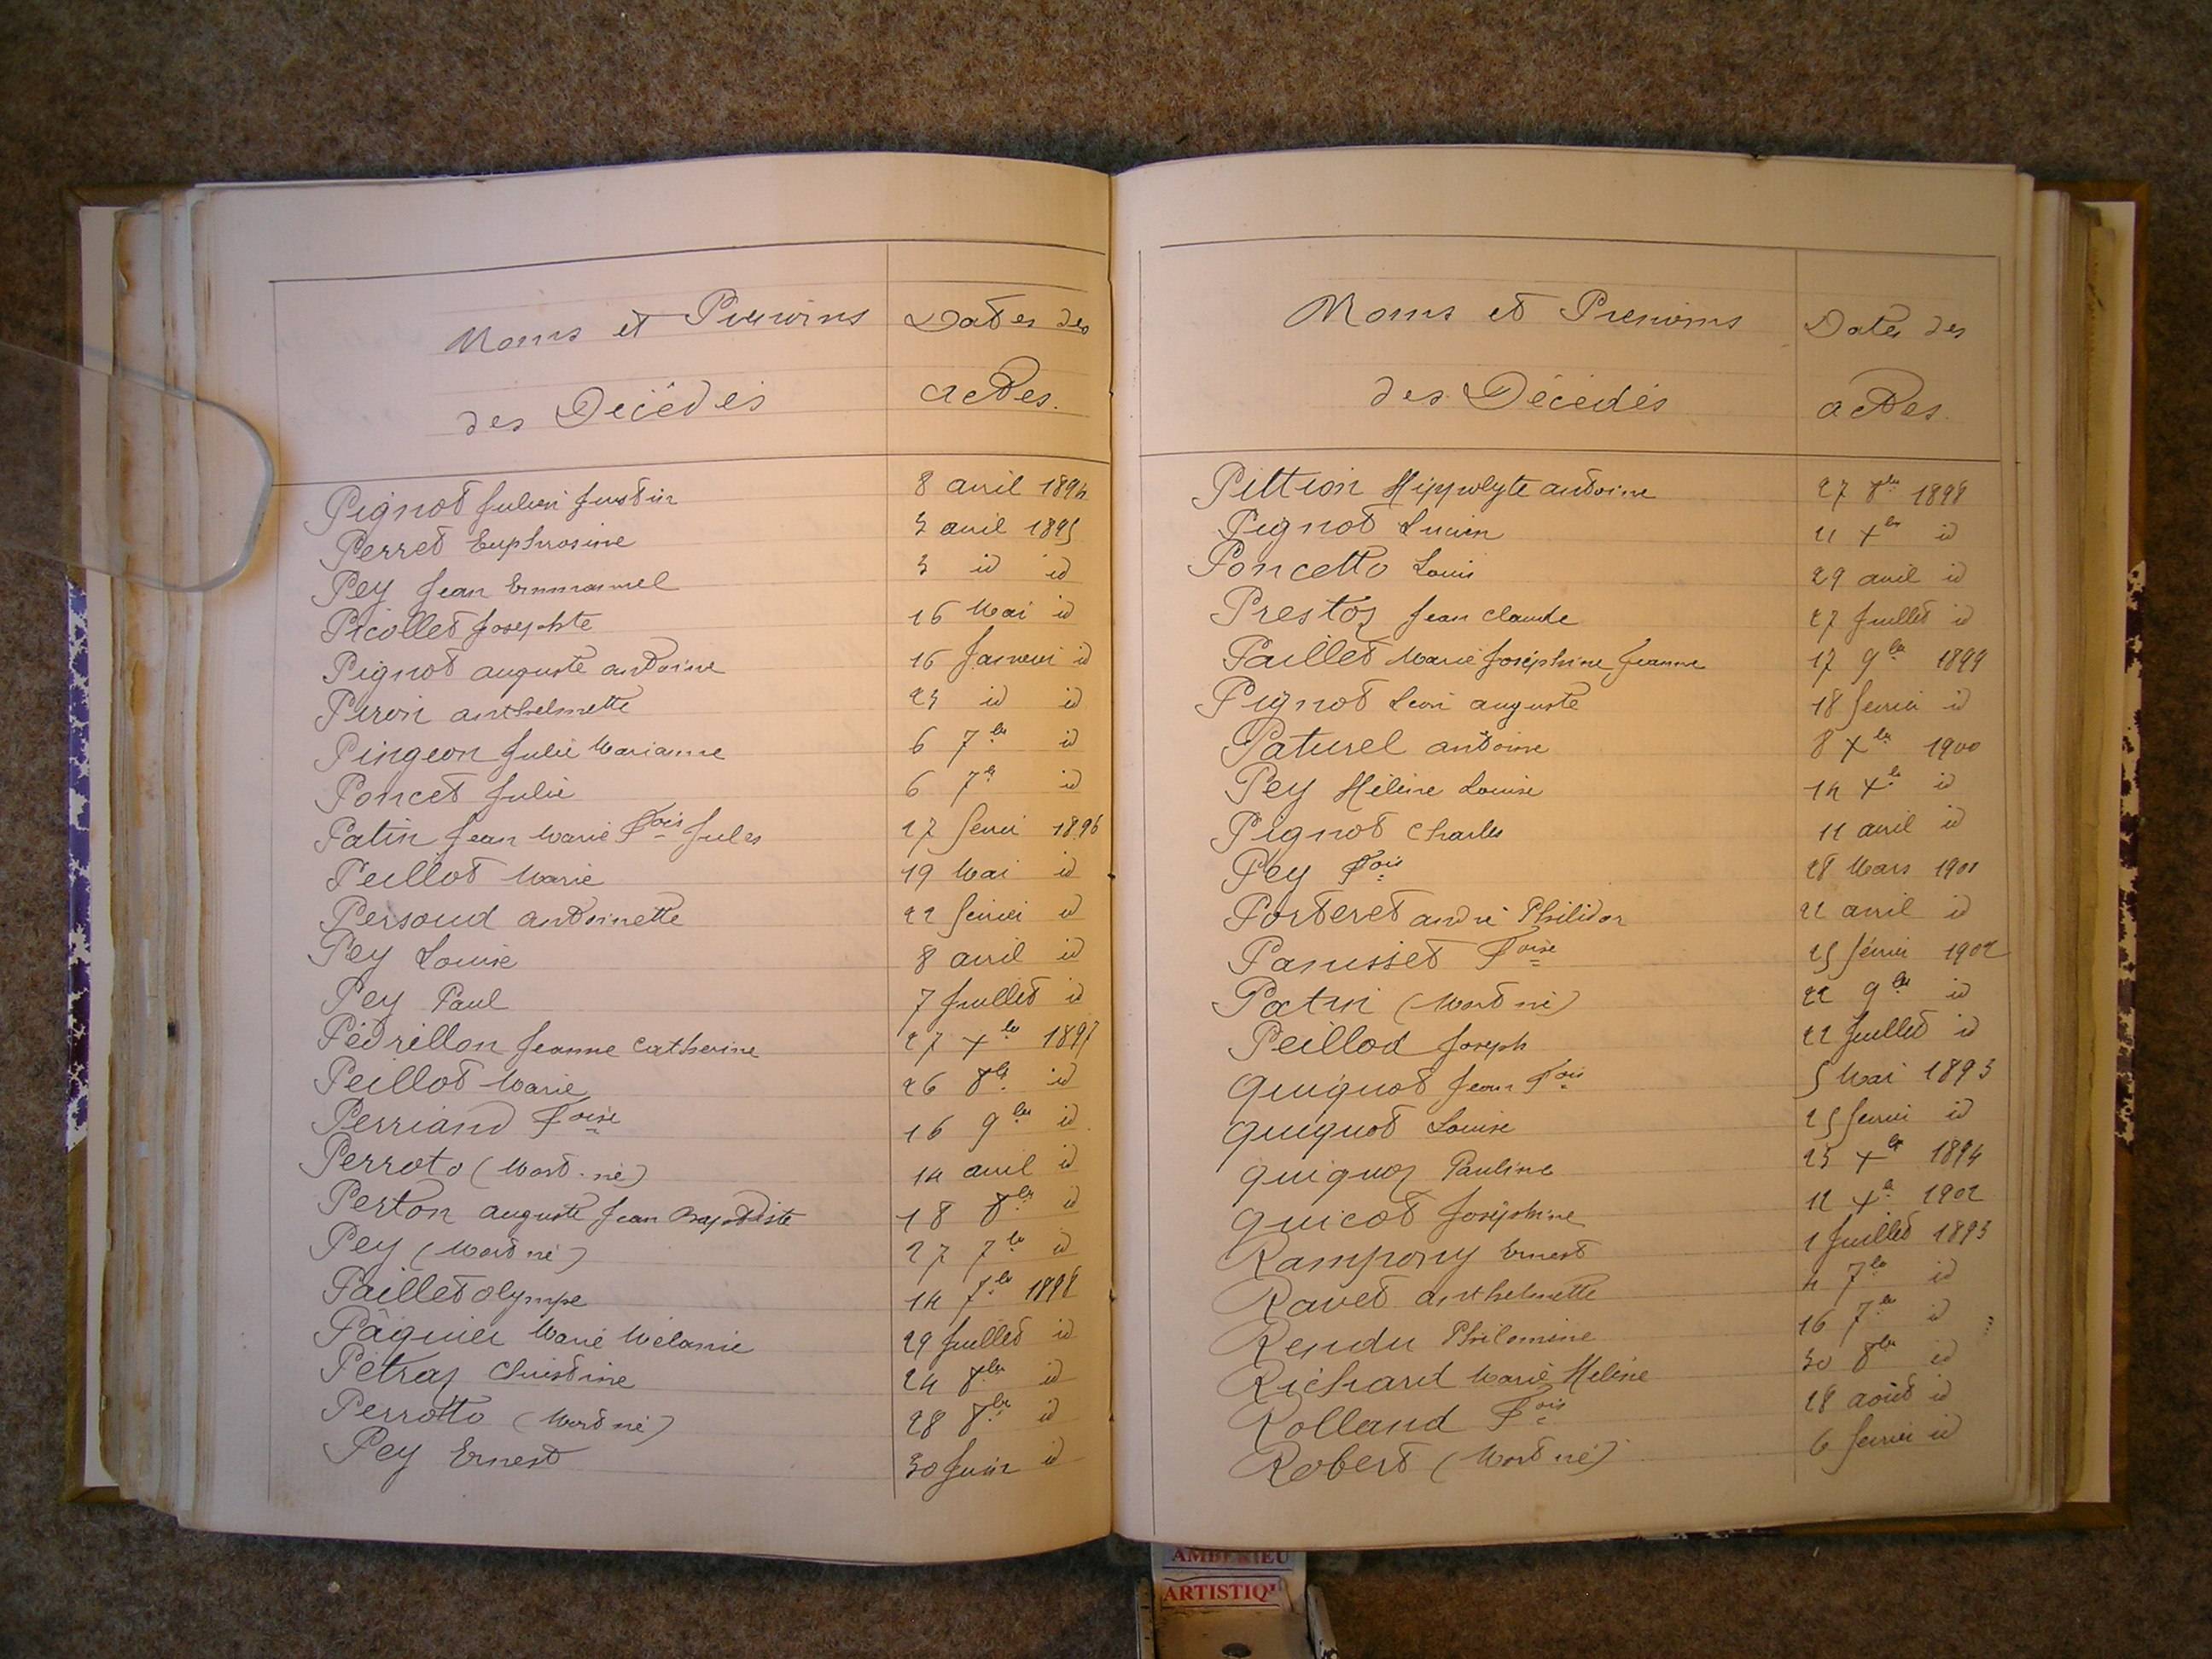 Noms et Prenoms
des Décédés
Dates des
actes.
Pignot Julien Justin 8 avril 1894
Perret Euphrosine 3 avril 1895
Pey Jean Emmanuel 3 id id
Picollet Josephte 16 Mai id
Pignot auguste antoine 16 Janvier id
Piron anthelmette 23 id id
Pingeon Julie Marianne 6 7bre id
Poncet Julie 6 7bre id
Patin Jean Marie Fois Jules 27 fevrier 1896
Peillot Marie 19 Mai id
Persoud antoinette 22 fevrier id
Pey Louise 8 avril id
Pey Paul 7 Juillet id
Pédrillon Jeanne Catherine 27 Xbre 1897
Peillot Marie 26 8bre id
Perriand Foise 16 9bre id
Perroto (Mort-né) 14 avril id
Perton auguste Jean Baptiste 18 8bre id
Pey (Mort né) 27 7bre id
Paillet olympe 14 7bre 1898
Pâquier Marie Mélanie 29 Juillet id
Pétraz Christine 24 8bre id
Perrotto (Mort né) 28 8bre id
Pey Ernest 30 Juin id
Noms et Prenoms
des Décédés
Dates des
actes.
Pittion Hippolyte antoine 27 8bre 1898
Pignot Lucien 21 Xbre id
Poncetto Louis 29 avril id
Prestoz Jean claude 27 Juillet id
Paillet Marie Joséphine Jeanne 17 9bre 1899
Pignot Léon auguste 18 fevrier id
Paturel antoine 8 Xbre 1900
Pey Hélène Louise 14 Xbre id
Pignot Charles 11 avril id
Pey Fois 28 Mars 1901
Porteret andré Philidor 22 avril id
Panisset Foise 25 février 1902
Patin (Mort né) 22 9bre id
Peillod Joseph 22 Juillet id
Quiquot Jean Fois 5 Mai 1893
Quiquot Louise 25 fevrier id
Quiquoz Pauline 23 Xbre 1894
Quicot Joséphine 12 Xbre 1902
Rampony Ernest 1 Juillet 1893
Ravet anthelmette 4 7bre id
Rendu Philomine 16 7bre id
Richard Marie Hélène 30 8bre id
Rolland Fois 28 août id
Robert (Mort né) 6 fevrier id
AMBERIEU
ARTISTIQ